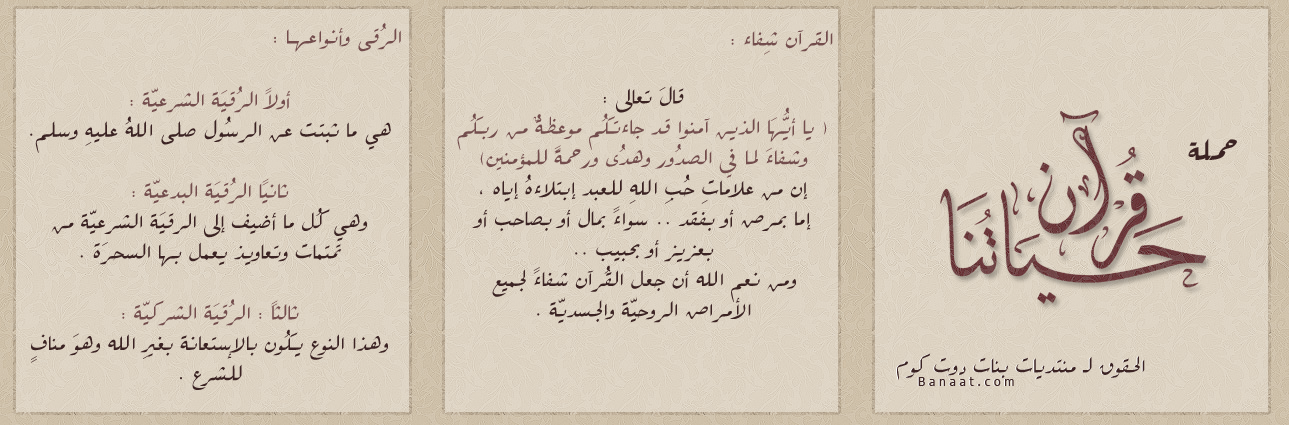 حملة
قُرآن
حـيَاتُنَا
الحقوق لـ منتديات بنات دوت كوم
Banaat.com
القرآن شِفاء :
قالَ تعالى :
( يا أيُّهَا الذين آمنوا قد جاءتكُم موعظةٌ من ربكُم
وشفاءَ لما في الصدُور وهدُى ورحمةً للمؤمنين)
إن من علاماتِ حُبِ اللهِ للعبد إبتلاءهُ إياه ،
إما بمرض أو بفقد .. سواءً بمال أو بصاحب أو
بعزيز أو بحبيب ..
ومن نعم الله أن جعل القُرآن شفاءً لجميع
الأمراض الروحيّة والجسديّة .
الرُقى وأنواعها :
أولاً الرُقيَة الشرعيّة :
هي ما ثبتت عن الرسُول صلى اللهُ عليهِ وسلم.
ثانيًا الرُقيَة البدعيّة :
وهي كُل ما أضيف إلى الرقيَة الشرعيّة من
تمتمات وتعاويذ يعمل بها السحرَة .
ثالثاً : الرُقيَة الشركيّة :
وهذا النوع يكُون بالإستعانة بغيرِ الله وهوَ منافٍ
للشرع .